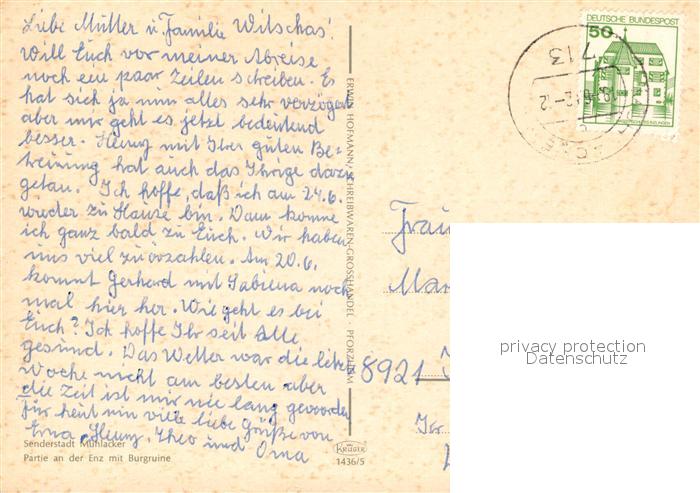 Liebe Mutter u. Familie Witschas!
Will Euch vor meiner Abreise
noch ein paar Zeilen schreiben. Es
hat sich ja nun alles sehr verzögert
aber mir geht es jetzt bedeutend
besser. Heinz mit Ihrer guten Be-
treuung hat auch das Ihrige dazu
getan. Ich hoffe, daß ich am 24.6.
wieder zu Hause bin. Dann komme
ich ganz bald zu Euch. Wir haben
uns viel zu erzahlen. Am 20.6.
kommt Gerhard mit Sabiena noch
mal hier her. Wie geht es bei
Euch? Ich hoffe Ihr seit Alle
gesund. Das Wetter war die letzte
Woche nicht am besten aber
die Zeit ist mir nie lang geworden
für heut nun viele liebe Grüße von
Erna, Heinz, Theo und Oma
Senderstadt Mühlacker
Partie an der Enz mit Burgruine
KRÜGER
1436/5
ERWIN HOFMANN, SCHREIBWAREN-GROSSHANDEL PFORZHEIM
DEUTSCHE BUNDESPOST
50
713
Frau
Mar
8921
privacy protection
Datenschutz